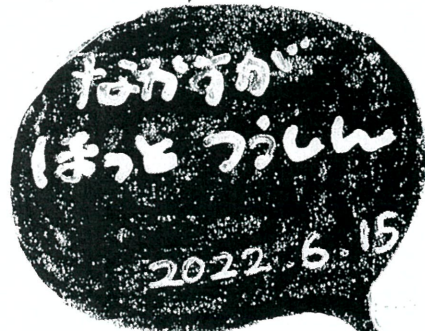 ながすが
ほっと つうしん
2022.6.15